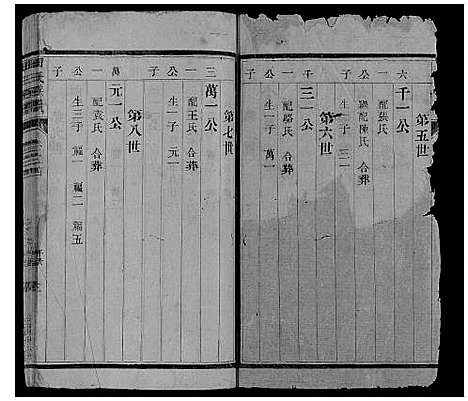 第五世
六
千一公
配張氏
繼配陳氏 合葬
生一子 三一
第六世
千一公子
三一公
配駱氏 合葬
生一子 萬一
第七世
三一公子
萬一公
配王氏 合葬
生一子 元一
第八世
萬一公子
元一公
配袁氏 合葬
生三子 福一 福二 福五